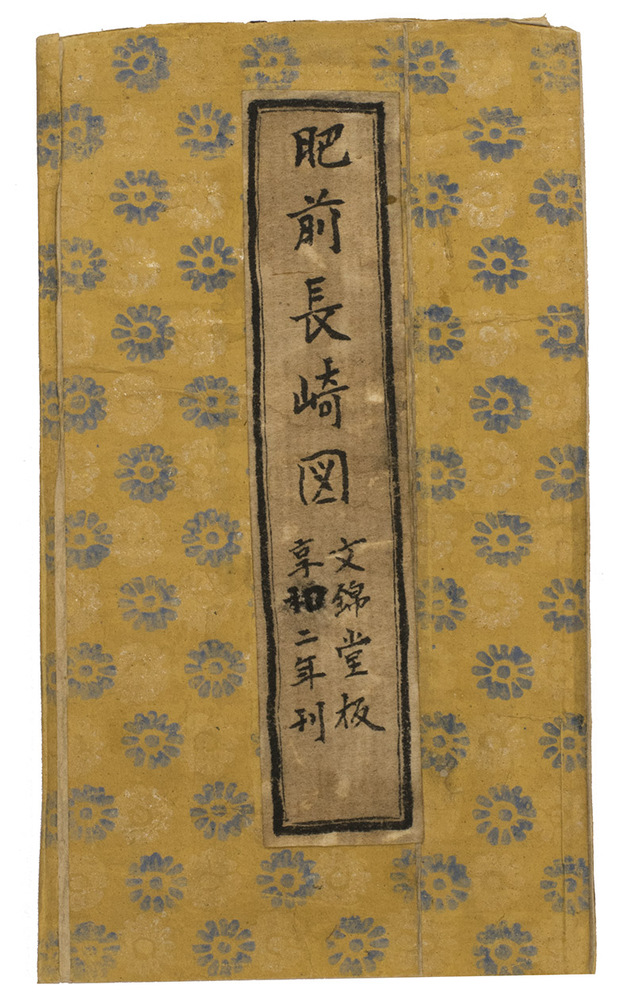 肥前長崎図
文錦堂板
享和二年刊